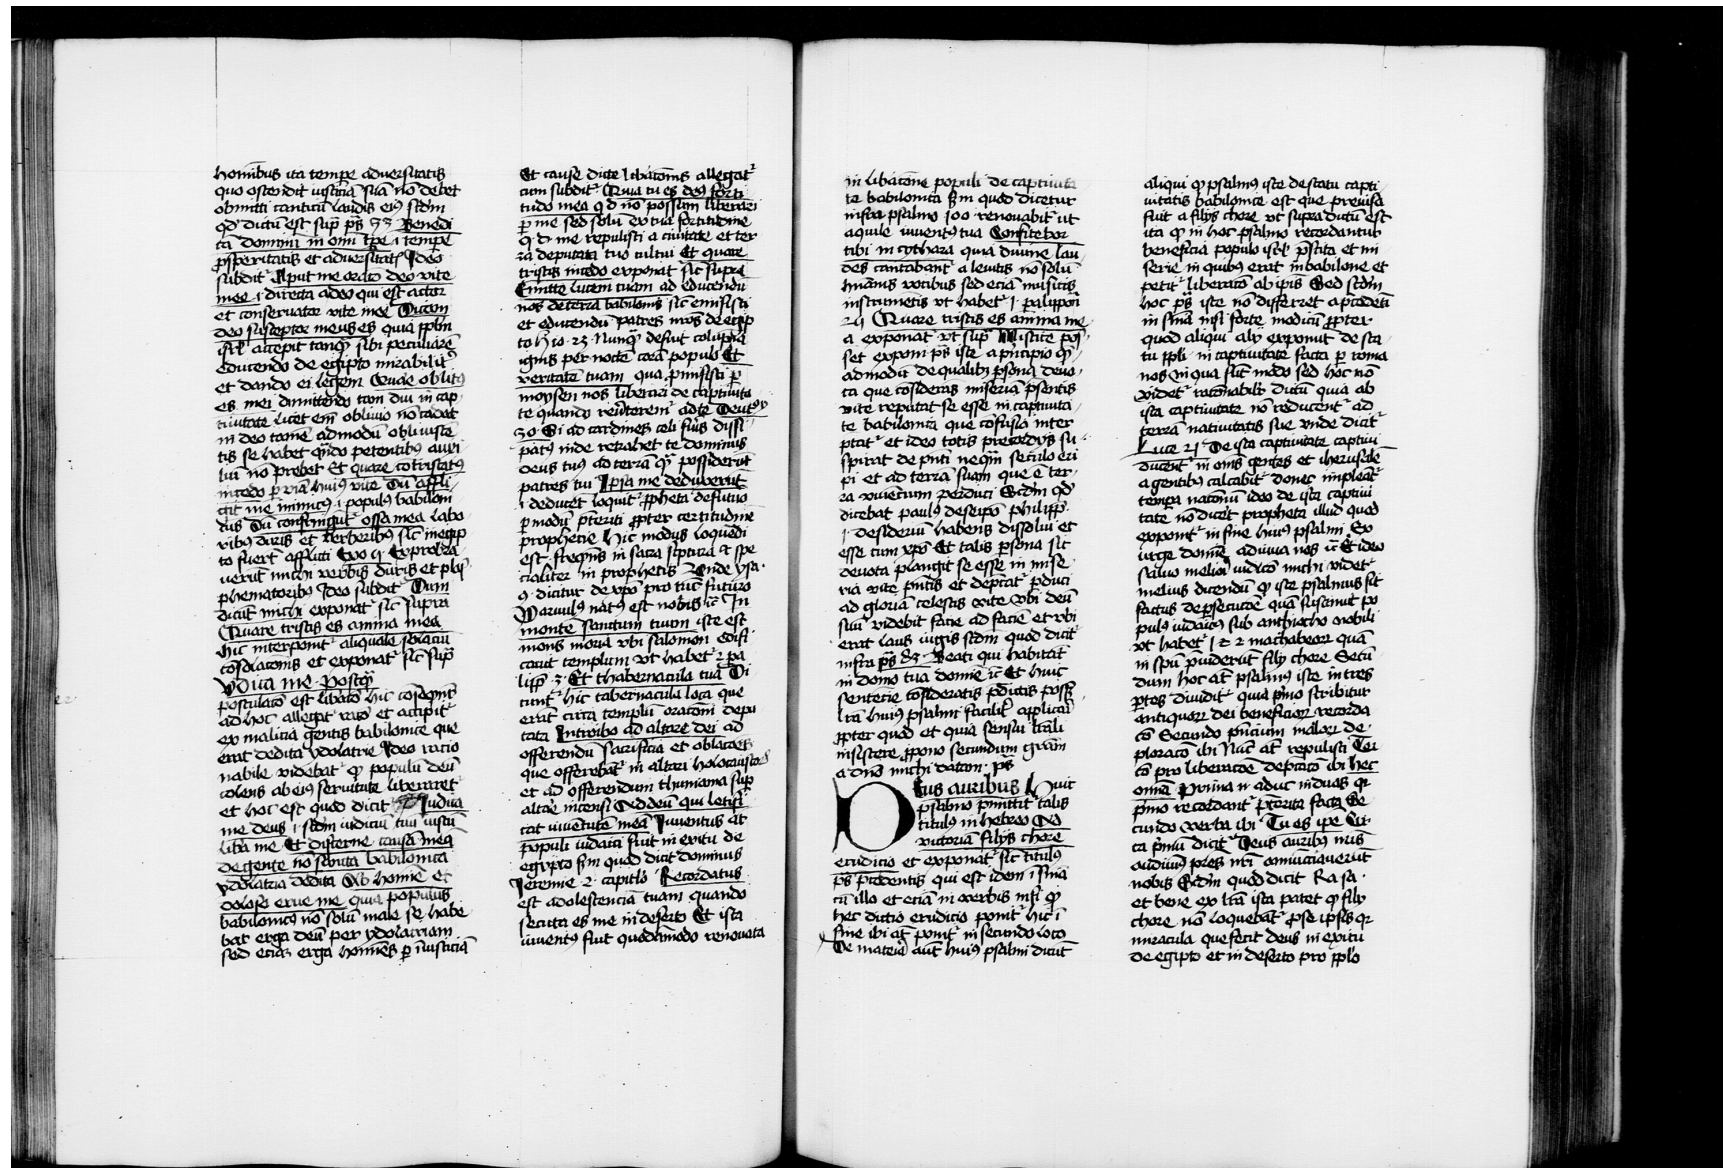 hominibus ita tempe adversitatis
quo ostendit iusticiā suā nō debet
obmitti canticū laudis eius scdm
qd dictū est sup ps 33 Benedi
cā dominū in omi tpe i tempe
prosperitatis et adversitatis Ideo
subdit Aput me oratō deo vite
mee i directa a deo qui est actor
et conservator vite mee Dicam
deo susceptor meus es quia pplm
isrl accepit tanq sibi peculiarē
educendo de egipto mirabilit
et dando ei legem Quare oblitus
es mei dimittendo tam diu in cap
tivitate licet em oblivio nō cadat
in deo tamē ad modū obliviscē
tis se habet qndo petentibus auxi
liū nō prebet Et quare cōtristatus
incedo p viā huius vite Dū affli
git me inimicus i populus babiloni
cus Dū confringūt ossa mea labo
ribus duris et verberibus sic in egip
to fuerūt afflicti Exo Exprobra
verūt michi verbis duris et blas
phematoribus Ideo subdit Dum
dicūt michi exponat sic supra
Quare tristis es anima mea
hic interponit aliquale solaciū
cōsolacōnis et exponat sic sup
Iudica me Postq
postulatō est libatō hic cōsequent
ad hoc allegat ratō et accipit
ex malicia gentis babilonice que
erat dedita ydolatrie Ideo racio
nabile videbat q populū deū
colens ab eius servitute liberaret
et hoc est quod dicit Iudica
me deus i scdm iudiciū tuū iustū
libera me Et discerne causā meā
de gente nō sancta babilonica
ydolatria dedita Ab homine et
doloso erue me quia populus
babilonicus nō solū male se habe
bat erga deū per ydolatriam
sed eciam erga homines p iniusticiā
Et cause dicte libacōnis allegat
cum subdit Quia tu es deus forti
tudo mea q d nō possum liberari
p me sed solū ex tua fortitudine
q d me repulisti a civitate et ter
ra deputata tuo cultui Et quare
tristis incedo exponat sic supra
Emitte lucem tuam ad educendū
nos de terra babilonis sic emisisti
et educendū patres nros de egip
to Nunq defuit colupna
ignis per noctē corā populo Et
veritatē tuam qua promisisti p
moysen nos liberari de captivita
te quando reverterem ad te Deut
30 Si ad cardines celi fūis dissi
patus inde retrahet te dominus
deus tuus ad terrā q possiderūt
patres tui Ipsa me deduxerūt
i deducet loquit ppheta de futuro
p modū preteriti ppter certitudinē
prophetie Hic modus loquēdi
est freqns in sacra scriptura et spe
cialiter in prophetis Unde ysa
9 dicitur de xpo pro tuc futuro
Parvulus natus est nobis In
monte sanctum tuum iste est
mons moria ubi salomon edifi
cavit templum ut habet 2 pa
lipp 3 Et thabernacula tua Di
cunt hic tabernacula loca que
erat circa templū oratōni depu
tata Introibo ad altare dei ad
offerendū sacrificia et oblacōes
que offerebāt in altari holocaustor
et ad offerendum thimiama sup
altare incensi Ad deū qui letifi
cat iuventutē meā Iuventus at
populi iudaici fuit in exitu de
egypto scdm quod dicit dominus
Jeremie 2 capitlo Recordatus
est adolescenciā tuam quando
secuta es me in deserto Et ista
iuventus fuit quodāmodo renovata
in libacōne populi de captivita
te babilonica scdm quod dicetur
infra psalmo 100 renovabit ut
aquile iuventus tua Confitebor
tibi in cythara quia divine lau
des cantabant a levitis nō solū
humanis vocibus sed eciā musicis
instrumētis ut habet palippoū
Quare tristis es anima me
a exponat ut sup Mistice pos
set exponi ps iste a principio q
ad modū de qualibz psona devo
ta que cōsiderās miseriā psentis
vite reputat se esse in captivita
te babilonica que cōfusio inter
ptat et ideo totis precordiis su
spirat de pnti neqm seculo eri
pi et ad terrā suam que ē ter
ra vivencium perduci Scdm qd
dicebat paulus de seipo philipp
desideriū habens dissolvi et
esse cum xpo Et talis psona sic
devota plangit se esse in mise
ria vite pntis et deptat pduci
ad gloriā celestis vite ubi deū
suū videbit facie ad faciē et ubi
erat laus iugis scdm quod dicit
infra ps 83 Beati qui habitāt
in domo tua domine Et huic
sentecie cōsideratis pdictis posset
lra huius psalmi faciliter applicari
ppter quod et quia sensui lrali
insistere ppono secundum gram
a dno michi datam ps
Deus auribus Huic
psalmo pmittit talis
titulus in hebreo Ad
victoriam filiis chore
erudicio et exponat sic titulus
ps precedentis qui est idem
cū illo et eciā in verbis nisi q
hec dictio erudicio ponit hic i
fine ibi at ponit in secundo loco
De materia aut huius psalmi dicūt
aliqui q psalmus iste de statu capti
vitatis babilonice est que previsa
fuit a filiis chore ut supra dictū est
ita q in hoc psalmo recordantur
beneficia populo isrl prestita et mi
serie in quibus erat in babilone et
petit liberatō ab ipis Sed scdm
hoc ps iste nō differret a precedēti
in snia nisi forte modicū ppter
quod aliqui alii exponūt de sta
tu ppli in captivitate facta p roma
nos in qua sūt modo sed hoc nō
videt racōnabilr dictū quia ab
ista captivitate nō reducent ad
terrā nativitatis sue unde dicit
Luce 21 De ista captivitate captivi
ducent in oms gentes et iherusalē
a gentibus calcabit donec impleāt
tempa nationū ideo de ista captivi
tate nō dicet propheta illud quod
exponit in fine huius psalmi Ex
urge domine adiuva nos Et ideo
salvo meliori iudicō michi videt
melius dicendū q iste psalmus sit
factus de psecucōe quā sustinuit po
pulus iudaicus sub anthiocho nobili
ut habet 1 et 2 machabeor quā
in spū pviderūt filii chore Secū
dum hoc at psalmus iste in tres
ptes dividit quia pmo scribitur
antiquor dei beneficior recorda
cō Secundo pntium malor de
ploracō ibi Nūc at repulisti Ter
cō pro liberacōe deptatō ibi hec
omia Prima in aduc in duas q
pmo recordant pterita facta Se
cundo verba ibi Tu es ipe Cir
ca pmū dicit Deus auribus nris
audivimus pres nri annunciaverūt
nobis Scdm quod dicit Ra sa
et bene ex lra ista patet q filii
chore nō loquebāt p se ipsis q
miracula que fecit deus in exitu
de egipto et in deserto pro pplo